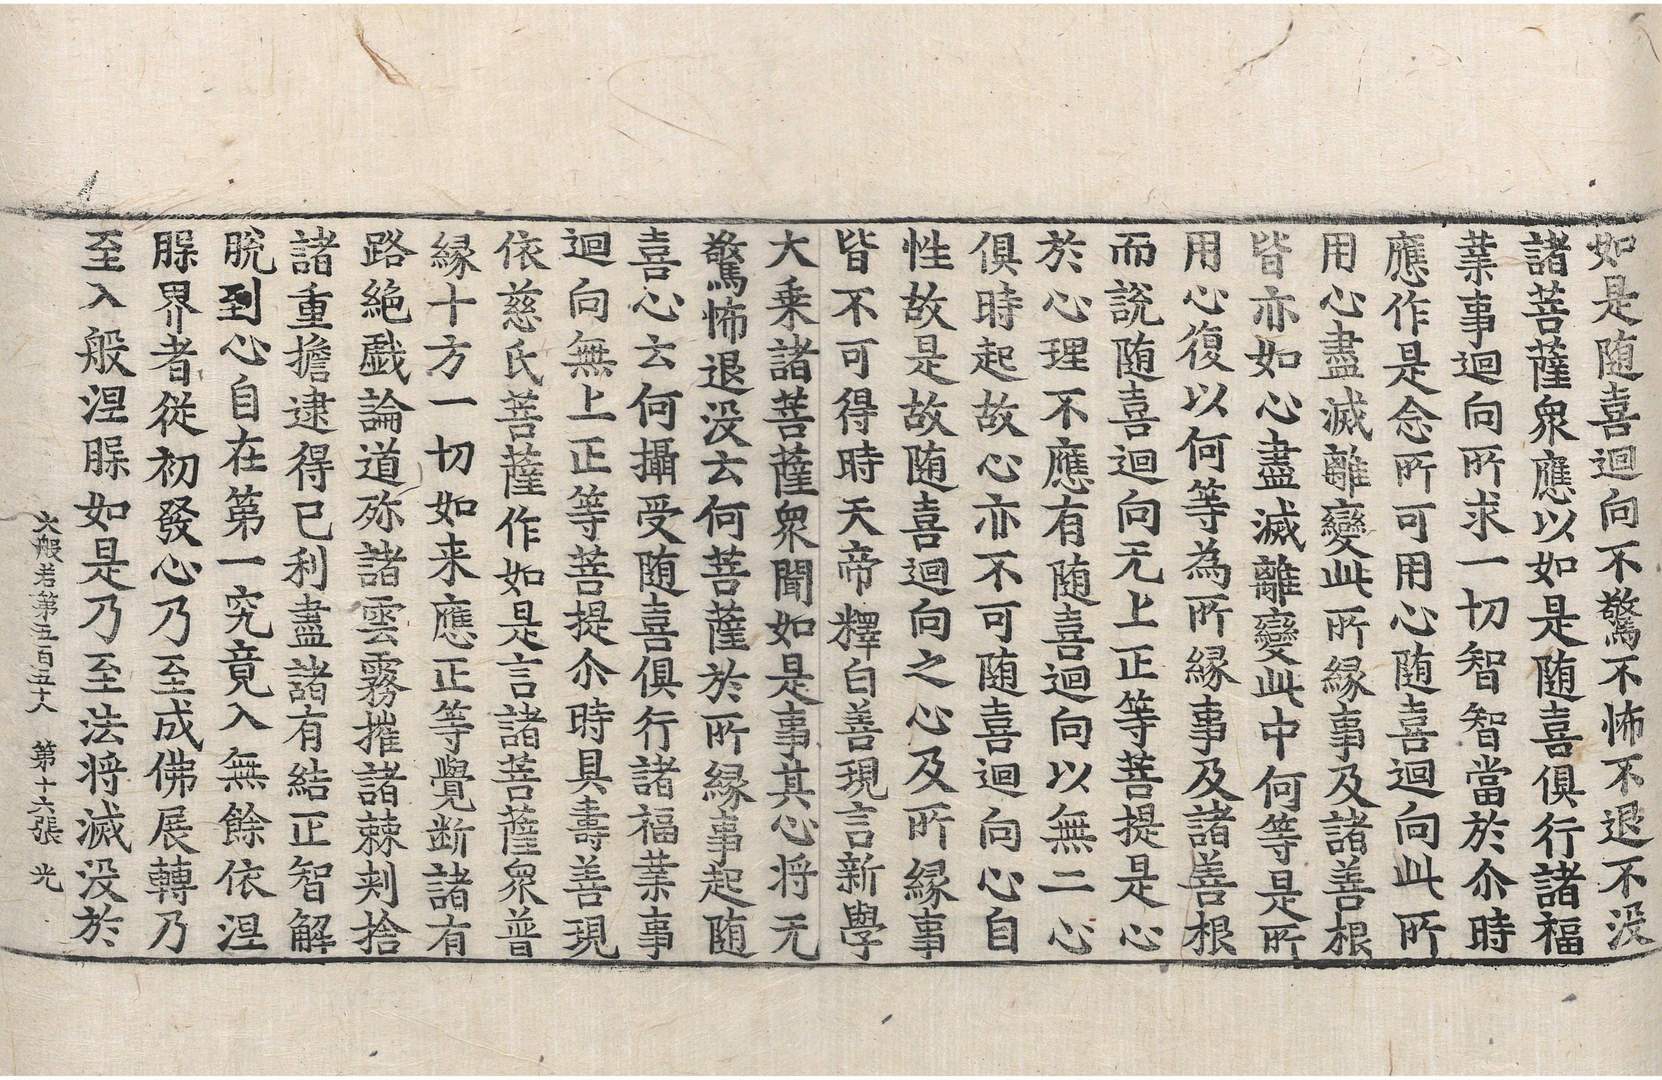 如是随喜迴向不驚不怖不退不没
諸菩薩衆應以如是随喜俱行諸福
業事迴向所求一切智智當於尒時
應作是念所可用心随喜迴向此所
用心盡滅離變此所縁事及諸善根
皆亦如心盡滅離變此中何等是所
用心復以何等為所縁事及諸善根
而說随喜迴向无上正等菩提是心
於心理不應有随喜迴向以無二心
俱時起故心亦不可随喜迴向心自
性故是故随喜迴向之心及所縁事
皆不可得時天帝釋白善現言新學
大乗諸菩薩衆聞如是事其心将无
驚怖退没云何菩薩於所縁事起随
喜心云何攝受随喜俱行諸福業事
迴向無上正等菩提尒時具壽善現
依慈氏菩薩作如是言諸菩薩衆普
縁十方一切如来應正等覺断諸有
路絶戯論道殄諸雲霧摧諸棘刾捨
諸重擔逮得己利盡諸有結正智解
脱到心自在第一究竟入無餘依涅
腂界者從初發心乃至成佛展轉乃
至入般涅腂如是乃至法将滅没於
大般若第五百五十八 第十六張 光